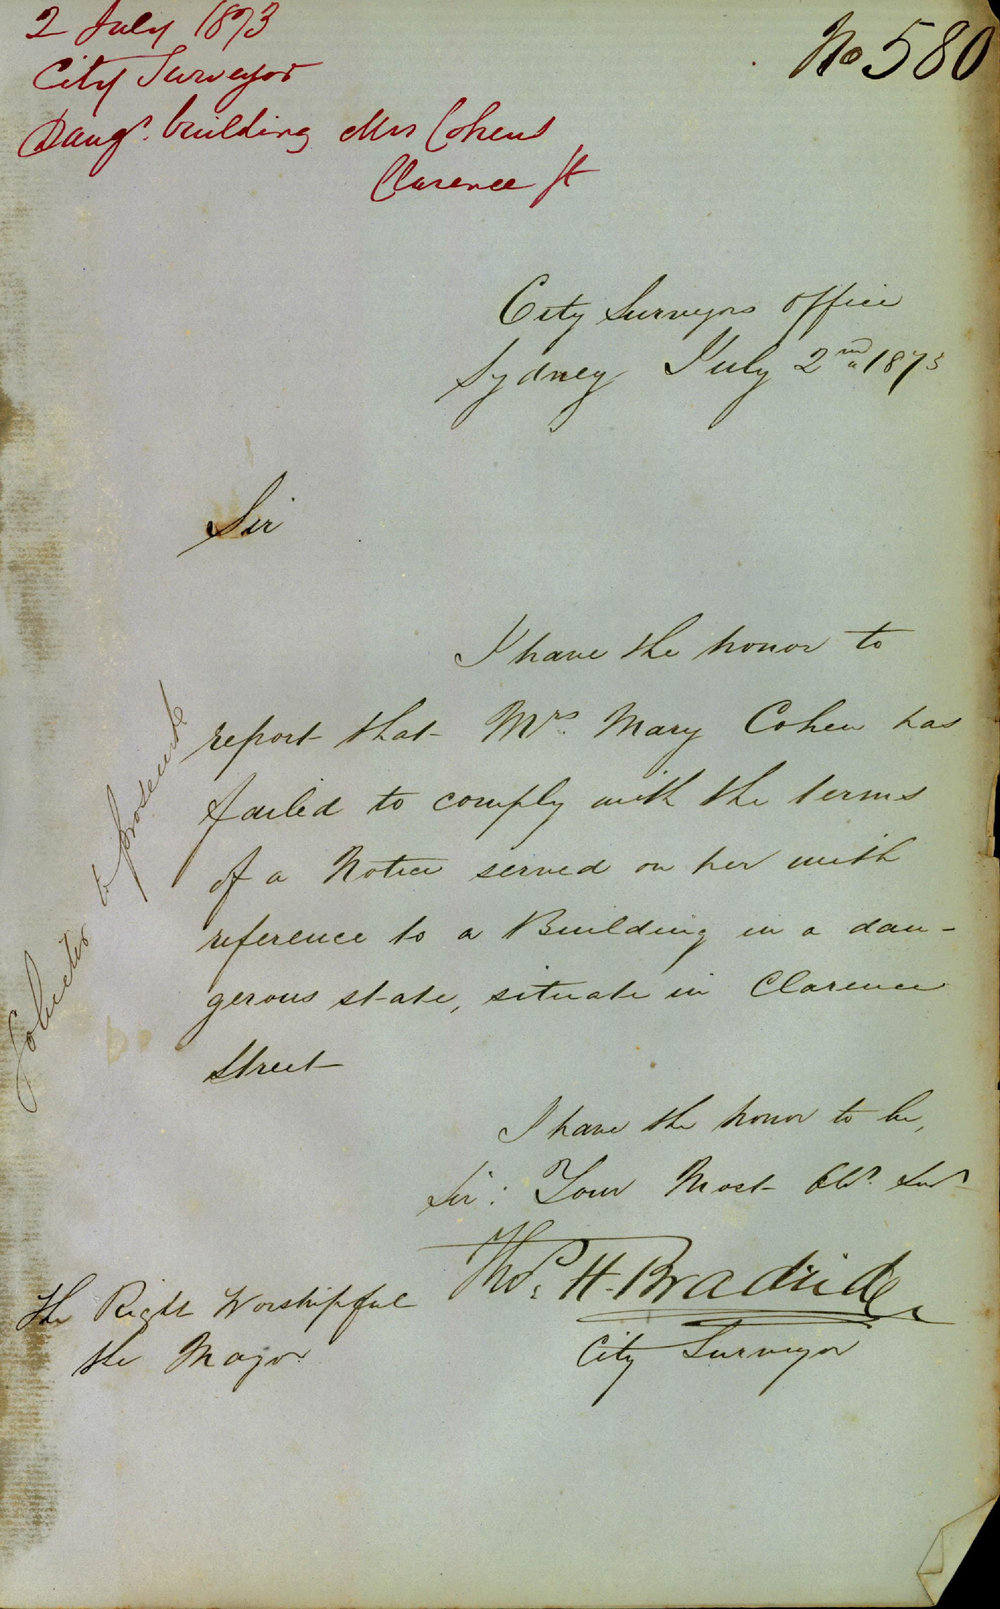 2 July 1873
City Surveyor
Dangs. building Mrs Cohens
Clarence St
No 580
City Surveyors Office
Sydney July 2nd 1873
Sir
I have the honor to
report that Mrs. Mary Cohen has
failed to comply with the terms
of a Notice served on her with
reference to a Building in a dan-
gerous state, situate in Clarence
Street
Solicitor to prosecute
I have the honor to be,
Sir: Your Most Obt. Svt
Thos. H. Bradridge
City Surveyor
The Right Worshipful
the Mayor